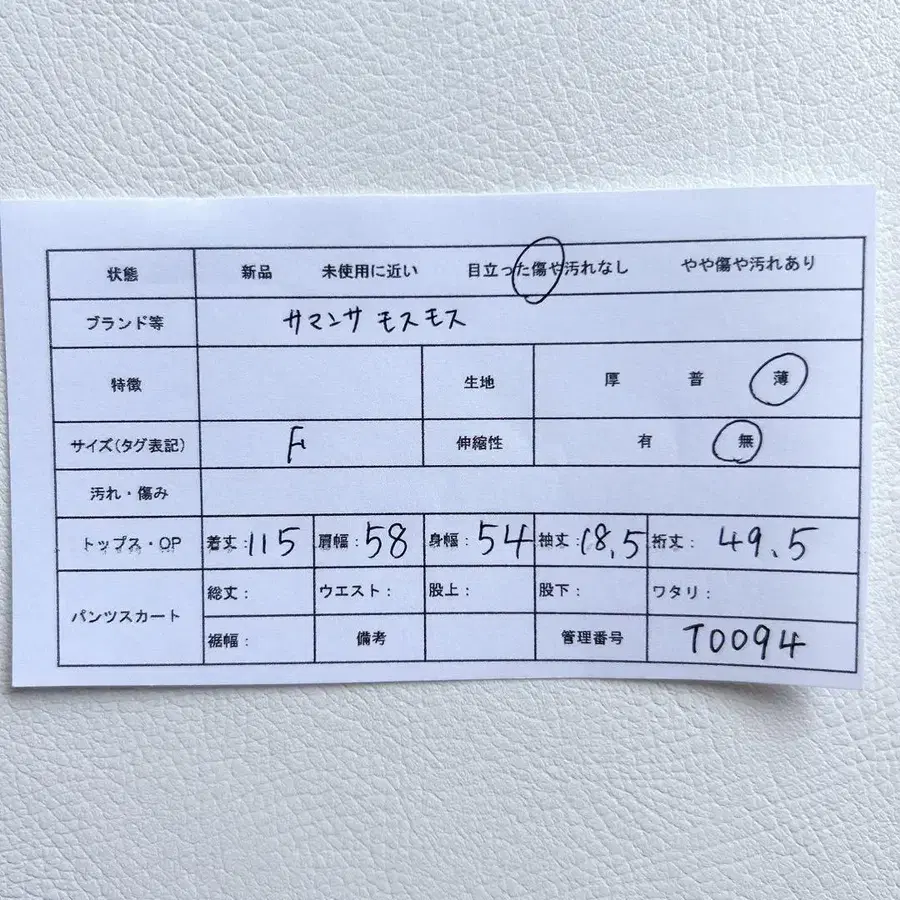 状態 新品 未使用に近い 目立った傷や汚れなし やや傷や汚れあり
ブランド等 サマンサ モスモス
特徴 生地 厚 普 薄
サイズ(タグ表記) F 伸縮性 有 無
汚れ・傷み
トップス・OP 着丈:115 肩幅:58 身幅:54 袖丈:18.5 裄丈: 49.5
パンツスカート 総丈: ウエスト: 股上: 股下: ワタリ:
裾幅: 備考 管理番号 T0094